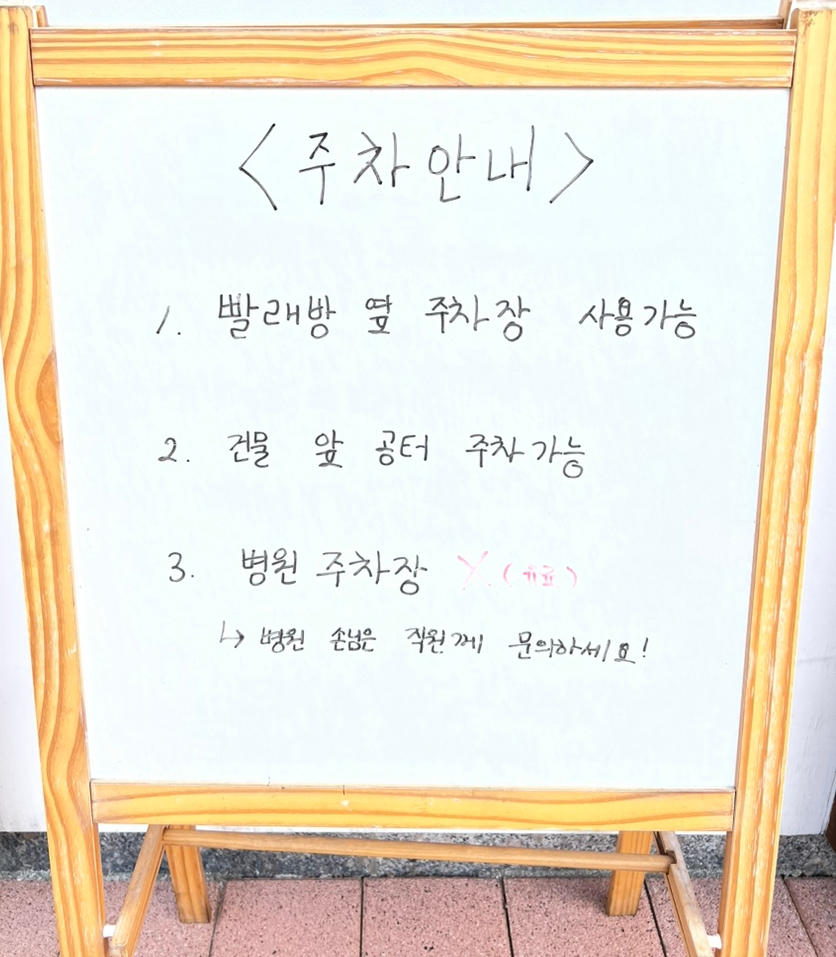 <주차안내>
1. 빨래방 옆 주차장 사용가능
2. 건물 앞 공터 주차가능
3. 병원 주차장 X (유료)
↳ 병원 손님은 직원께 문의하세요!